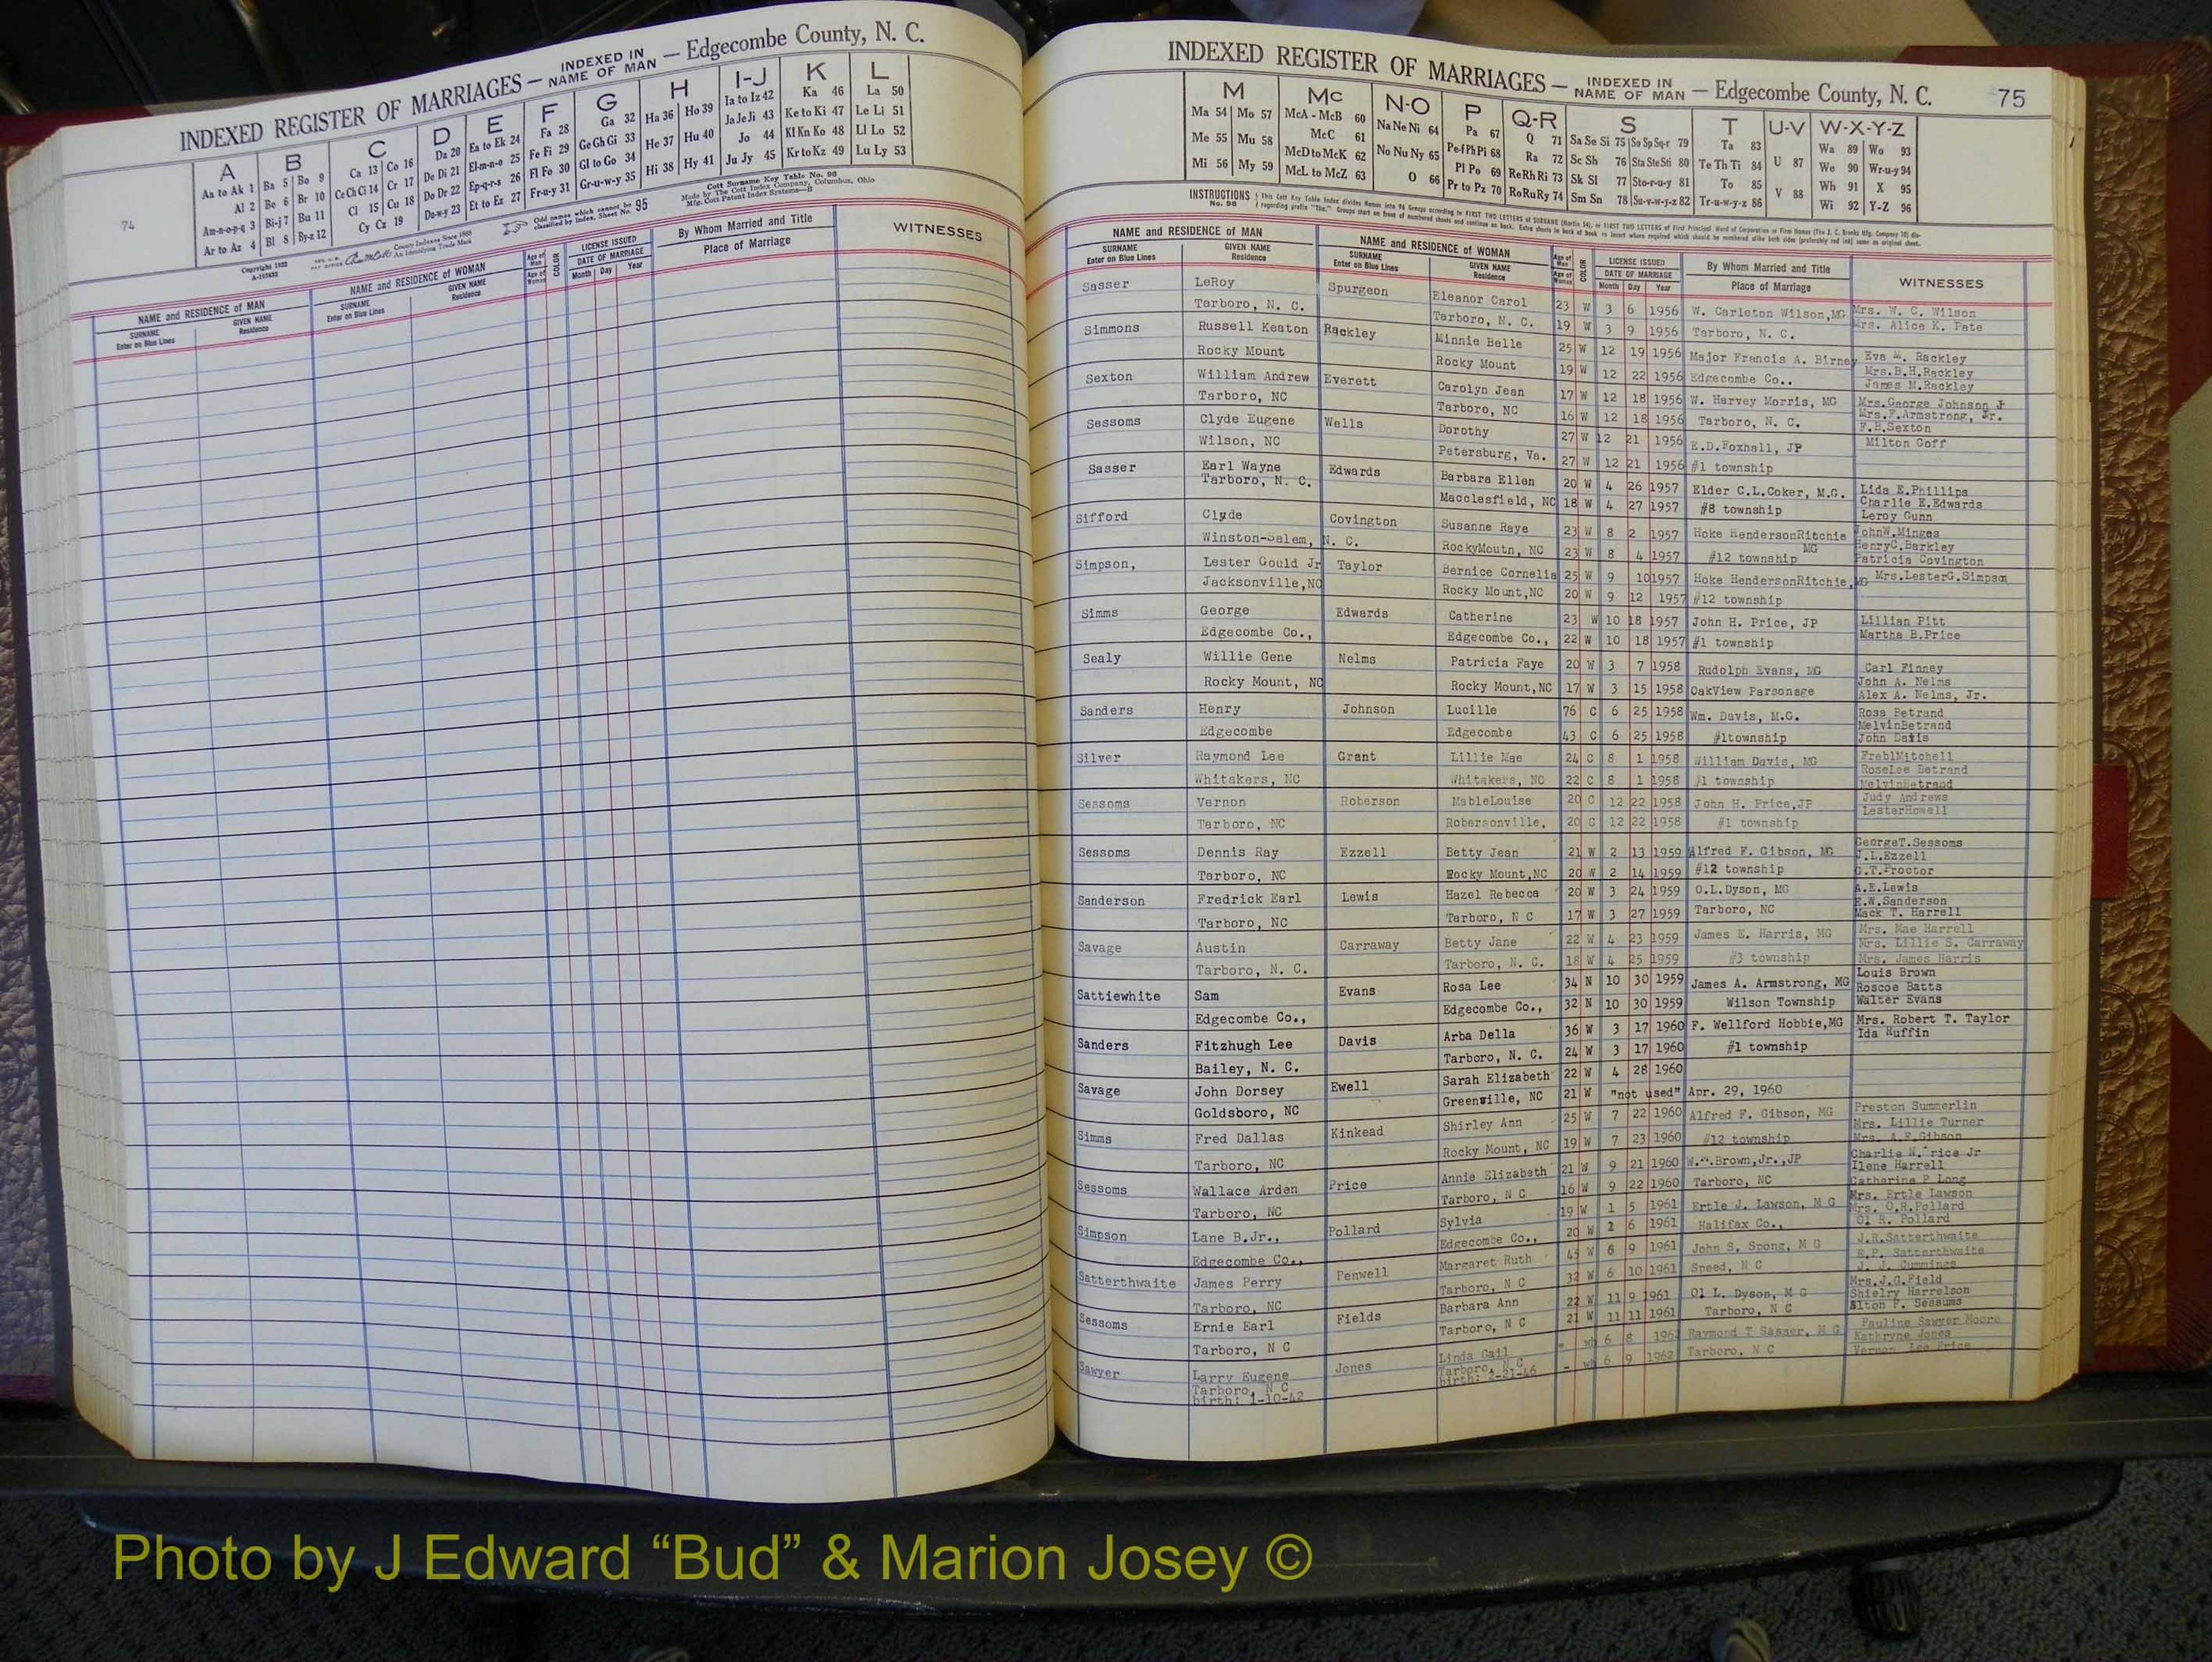 INDEXED REGISTER OF MARRIAGES — INDEXED IN NAME OF MAN — Edgecombe County, N. C.
A B C D E F G H I-J K L
Aa to Ak 1 Ba 5 Bo 9 Ca 13 Co 16 Da 20 Ea to Ek 24 Fa 28 Ga 32 Ha 36 Ho 39 Ia to Iz 42 Ka 46 La 50
Al 2 Be 6 Br 10 Ce Ch Ci 14 Cr 17 De Di 21 El-m-n-o 25 Fe Fi 29 Ge Gh Gi 33 He 37 Hu 40 Ja Je Ji 43 Ke to Ki 47 Le Li 51
Am-n-o-p-q 3 Bi-j 7 Bu 11 Cl 15 Cu 18 Do Dr 22 Ep-q-r-s 26 Fl Fo 30 Gl to Go 34 Hi 38 Hy 41 Jo 44 Kl Kn Ko 48 Ll Lo 52
Ar to Az 4 Bl 8 By-z 12 Cy Cz 19 Do-w-y 23 Et to Ez 27 Fr-u-y 31 Gr-u-w-y 35 Ju Jy 45 Kr to Kz 49 Lu Ly 53
74
Odd names which cannot be classified by Index, Sheet No. 95
Cott Surname Key Table No. 96
Made by The Cott Index Company, Columbus, Ohio
Mfg. Cott Patent Index Systems—B
NAME and RESIDENCE of MAN
SURNAME Enter on Blue Lines
GIVEN NAME Residence
NAME and RESIDENCE of WOMAN
SURNAME Enter on Blue Lines
GIVEN NAME Residence
Age of Man
Age of Woman
COLOR
LICENSE ISSUED
DATE OF MARRIAGE
Month Day Year
By Whom Married and Title
Place of Marriage
WITNESSES
INDEXED REGISTER OF MARRIAGES — INDEXED IN NAME OF MAN — Edgecombe County, N. C. 75
M Mc N-O P Q-R S T U-V W-X-Y-Z
Ma 54 Mo 57 McA - McB 60 Na Ne Ni 64 Pa 67 Q 71 Sa Se Si 75 So Sp Sq-r 79 Ta 83 Wa 89 Wo 93
Me 55 Mu 58 McC 61 No Nu Ny 65 Pe-f Ph Pi 68 Ra 72 Sc Sh 76 Sta Ste Sti 80 Te Th Ti 84 U 87 We 90 Wr-u-y 94
Mi 56 My 59 McD to McK 62 O 66 Pl Po 69 Re Rh Ri 73 Sk Sl 77 Sto-r-u-y 81 To 85 V 88 Wh 91 X 95
McL to McZ 63 Pr to Pz 70 Ro Ru Ry 74 Sm Sn 78 Su-v-w-y-z 82 Tr-u-w-y-z 86 Wi 92 Y-Z 96
INSTRUCTIONS
NAME and RESIDENCE OF MAN
SURNAME Enter on Blue Lines
GIVEN NAME Residence
NAME and RESIDENCE OF WOMAN
SURNAME Enter on Blue Lines
GIVEN NAME Residence
Age of Man
Age of Woman
COLOR
LICENSE ISSUED
DATE OF MARRIAGE
Month Day Year
By Whom Married and Title
Place of Marriage
WITNESSES
Sasser LeRoy Spurgeon Eleanor Carol 23 W 3 6 1956 W. Carleton Wilson,MG Mrs. W. C. Wilson
Tarboro, N. C. Tarboro, N. C. 19 W 3 9 1956 Tarboro, N. C. Mrs. Alice K. Pate
Simmons Russell Keaton Rackley Minnie Belle 25 W 12 19 1956 Major Francis A. Birney Eva M. Rackley
Rocky Mount Rocky Mount 19 W 12 22 1956 Edgecombe Co.. Mrs.B.H.Rackley
James M.Rackley
Sexton William Andrew Everett Carolyn Jean 17 W 12 18 1956 W. Harvey Morris, MG Mrs.George Johnson J
Tarboro, NC Tarboro, NC 16 W 12 18 1956 Tarboro, N. C. Mrs.F.Armstrong, Jr.
F.B.Sexton
Sessoms Clyde Eugene Wells Dorothy 27 W 12 21 1956 E.D.Foxhall, JP Milton Goff
Wilson, NC Petersburg, Va. 27 W 12 21 1956 #1 township
Sasser Earl Wayne Edwards Barbara Ellen 20 W 4 26 1957 Elder C.L.Coker, M.G. Lida E.Phillips
Tarboro, N. C. Macclesfield, NC 18 W 4 27 1957 #8 township Charlie E.Edwards
Leroy Gunn
Sifford Clyde Covington Susanne Raye 23 W 8 2 1957 Hoke HendersonRitchie MG JohnW.Minges
Winston-Salem, N. C. RockyMoutn, NC 23 W 8 4 1957 #12 township HenryC.Barkley
Patricia Covington
Simpson, Lester Gould Jr Taylor Bernice Cornelia 25 W 9 10 1957 Hoke HendersonRitchie,MG Mrs.LesterG.Simpson
Jacksonville,NC Rocky Mount,NC 20 W 9 12 1957 #12 township
Simms George Edwards Catherine 23 W 10 18 1957 John H. Price, JP Lillian Pitt
Edgecombe Co., Edgecombe Co., 22 W 10 18 1957 #1 township Martha B.Price
Sealy Willie Gene Nelms Patricia Faye 20 W 3 7 1958 Rudolph Evans, MG Carl Finney
Rocky Mount, NC Rocky Mount,NC 17 W 3 15 1958 OakView Parsonage John A. Nelms
Alex A. Nelms, Jr.
Sanders Henry Johnson Lucille 76 C 6 25 1958 Wm. Davis, M.G. Rosa Betrand
Edgecombe Edgecombe 43 C 6 25 1958 #1township MelvinBetrand
John Davis
Silver Raymond Lee Grant Lillie Mae 24 C 8 1 1958 William Davis, MG FreblMitchell
Whitakers, NC Whitakers, NC 22 C 8 1 1958 #1 township RoseLee Betrand
MelvinBetrand
Sessoms Vernon Roberson MableLouise 20 C 12 22 1958 John H. Price,JP Judy Andrews
Tarboro, NC Robersonville, 20 C 12 22 1958 #1 township LesterHowell
Sessoms Dennis Ray Ezzell Betty Jean 21 W 2 13 1959 Alfred F. Gibson, MG GeorgeT.Sessoms
Tarboro, NC Rocky Mount,NC 20 W 2 14 1959 #12 township J.L.Ezzell
G.T.Proctor
Sanderson Fredrick Earl Lewis Hazel Rebecca 20 W 3 24 1959 O.L.Dyson, MG A.E.Lewis
Tarboro, NC Tarboro, N C 17 W 3 27 1959 Tarboro, NC E.W.Sanderson
Mack T. Harrell
Savage Austin Carraway Betty Jane 22 W 4 23 1959 James E. Harris, MG Mrs. Mae Harrell
Tarboro, N. C. Tarboro, N. C. 18 W 4 25 1959 #3 township Mrs. Lillie S. Carraway
Mrs. James Harris
Sattiewhite Sam Evans Rosa Lee 34 N 10 30 1959 James A. Armstrong, MG Louis Brown
Edgecombe Co., Edgecombe Co., 32 N 10 30 1959 Wilson Township Roscoe Batts
Walter Evans
Sanders Fitzhugh Lee Davis Arba Della 36 W 3 17 1960 F. Wellford Hobbie,MG Mrs. Robert T. Taylor
Bailey, N. C. Tarboro, N. C. 24 W 3 17 1960 #1 township Ida Ruffin
Savage John Dorsey Ewell Sarah Elizabeth 22 W 4 28 1960
Goldsboro, NC Greenville, NC 21 W "not used" Apr. 29, 1960
Simms Fred Dallas Kinkead Shirley Ann 25 W 7 22 1960 Alfred F. Gibson, MG Preston Summerlin
Tarboro, NC Rocky Mount, NC 19 W 7 23 1960 #12 township Mrs. Lillie Turner
Mrs. A.F.Gibson
Sessoms Wallace Arden Price Annie Elizabeth 21 W 9 21 1960 W.M.Brown,Jr.,JP Charlie N. rice Jr
Tarboro, NC Tarboro, N C 16 W 9 22 1960 Tarboro, NC Ilene Harrell
Catharine P Long
Simpson Lane B.Jr., Pollard Sylvia 19 W 1 5 1961 Ertle J. Lawson, M G Mrs. Ertle Lawson
Edgecombe Co., Edgecombe Co., 20 W 2 6 1961 Halifax Co., Mrs. O.R.Pollard
Ol R. Pollard
Satterthwaite James Perry Penwell Margaret Ruth 45 W 6 9 1961 John S. Spong, M G J.R.Satterthwaite
Tarboro, NC Tarboro, N C 32 W 6 10 1961 Speed, N C E.P. Satterthwaite
J. J. Cummings
Sessoms Ernie Earl Fields Barbara Ann 22 W 11 9 1961 Ol L. Dyson, M G Mrs.J.G.Field
Tarboro, N C Tarboro, N C 21 W 11 11 1961 Tarboro, N C Shielry Harrelson
Alton F. Sessums
Sawyer Larry Eugene Jones Linda Gail - Wh 6 8 1962 Raymond T Sasser, M G Pauline Sawyer Moore
Tarboro, N C Tarboro, N C - Wh 6 9 1962 Tarboro, N C Kathryne Jones
birth: 1-10-42 birth: 2-21-46 Vernon Lee Price
Photo by J Edward “Bud” & Marion Josey ©